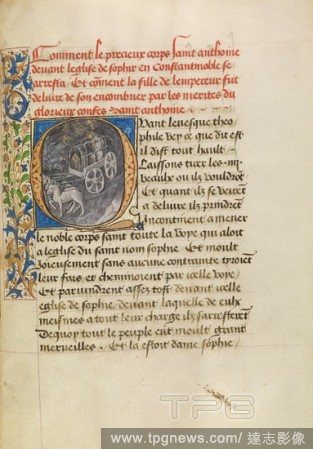 Comment le precieux corps saint anthoine
devant leglise de sophie en Constantinoble se
arresta. Et coment la fille de lempereur fut
delivre de son encombrier par les merites du
glorieux confes saint anthoine
Quant levesque theo
phile vey ce que dit est
il dist tout hault
Laissons tirer les
veaulx ou ilz vouldront
Et quant ilz se veirent
a delivre ilz prindrent
Incontinent a mener
le noble corps saint toute la voye qui aloit
a leglise du saint nom sophie. Et moult
joieusement sans aucune contrainte tyroient
leur fais et cheminoient par icelle voye.
Et parvindrent assez tost devant icelle
eglise de sophie, devant laquelle de eulx
meismes a tout leur charge ilz sarresterent
Dequoy tout le peuple eut moult grant
merveilles. Et la estoit dame sophie,
TPG
www.tpgnews.com/ 達志影像